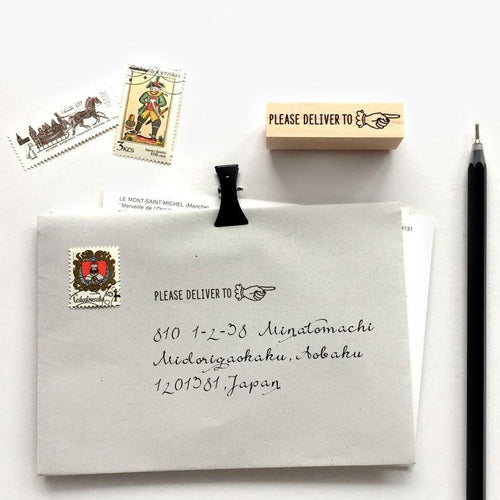 Československo
3Kčs
PLEASE DELIVER TO
LE MONT-SAINT-MICHEL (Manche)
"Merveille de l'Occi
PLEASE DELIVER TO
810 1-2-38 Minatomachi
Midorigaokaku, Aobaku
1201381, Japan
Československo